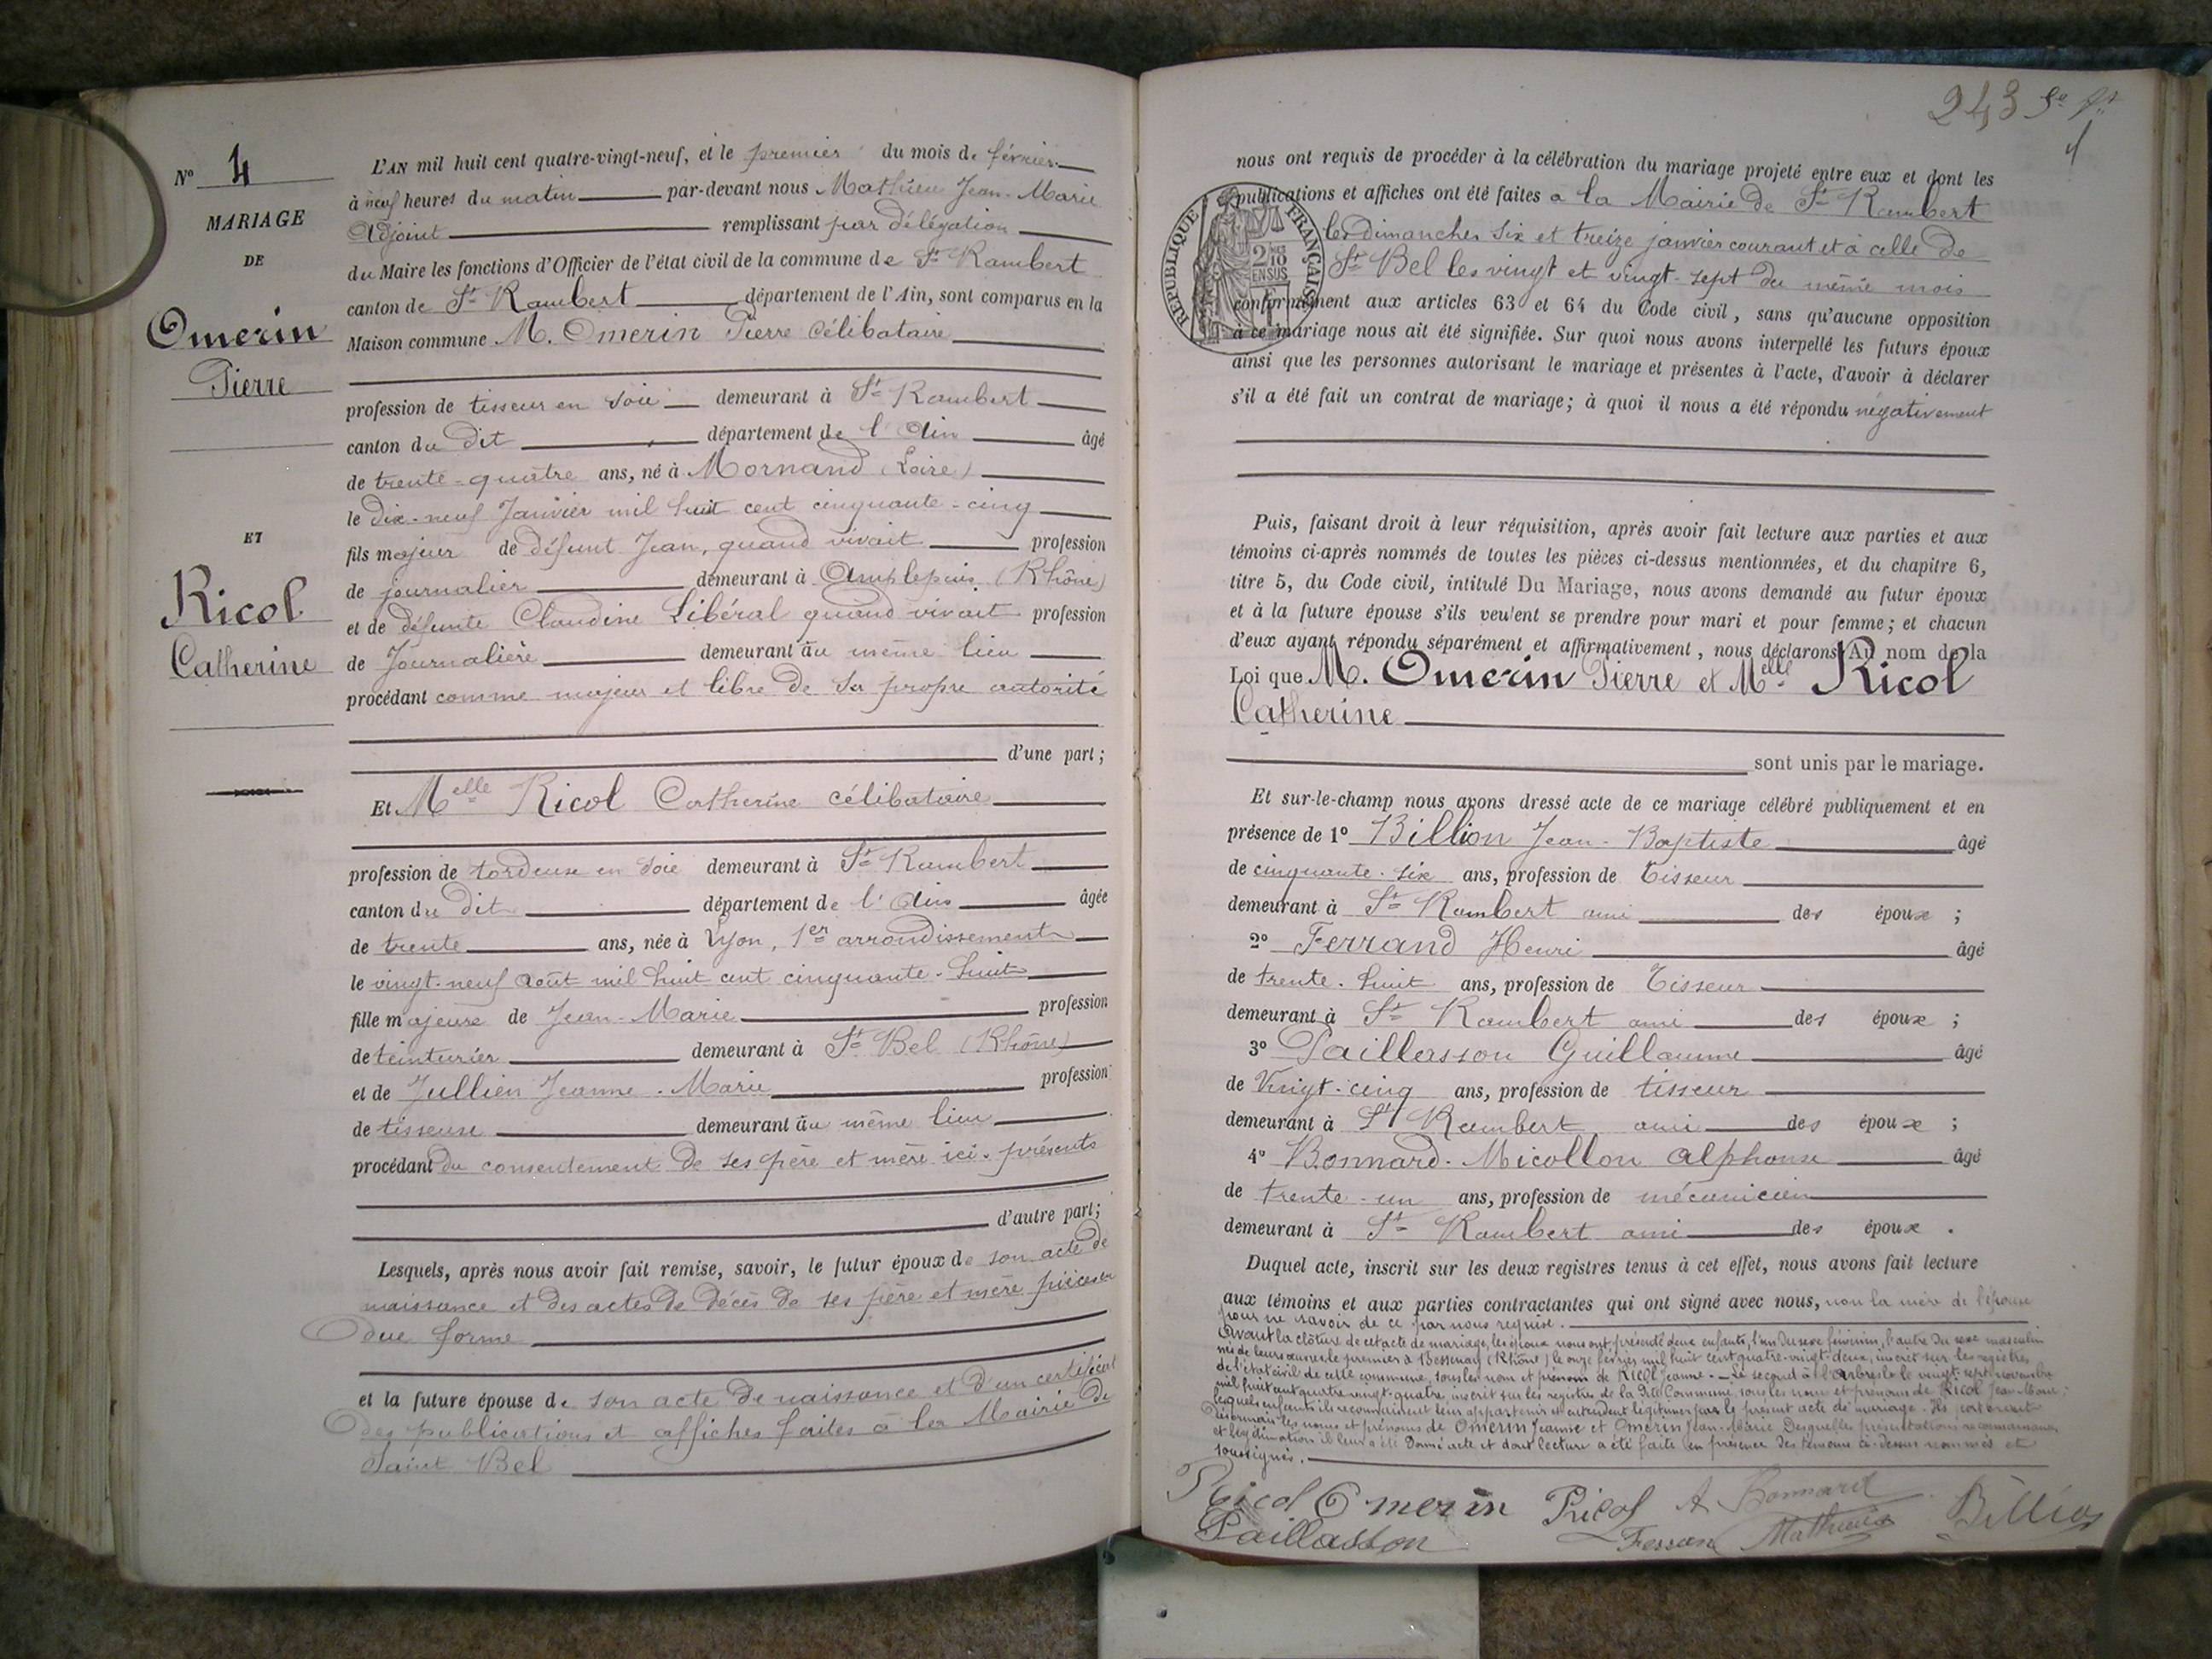 N° 4
MARIAGE
DE
Omerin
Pierre
ET
Ricol
Catherine
L'AN mil huit cent quatre-vingt-neuf, et le premier du mois de février
à neuf heures du matin par-devant nous Mathieu Jean-Marie
Adjoint remplissant par délégation
du Maire les fonctions d'Officier de l'état civil de la commune de St Rambert
canton de St Rambert département de l'Ain, sont comparus en la
Maison commune M. Omerin Pierre célibataire
profession de tisseur en soie demeurant à St Rambert
canton du dit département de l'Ain âgé
de trente-quatre ans, né à Mornand (Loire)
le dix-neuf Janvier mil huit cent cinquante-cinq
fils majeur de défunt Jean, quand vivait profession
de journalier demeurant à Amplepuis (Rhône)
et de défunte Claudine Libéral quand vivait profession
de Journalière demeurant au même lieu
procédant comme majeur et libre de sa propre autorité
d'une part;
Et Melle Ricol Catherine célibataire
profession de tordeuse en soie demeurant à St Rambert
canton du dit département de l'Ain âgée
de trente ans, née à Lyon, 1er arrondissement
le vingt-neuf août mil huit cent cinquante-huit
fille majeure de Jean-Marie profession
de teinturier demeurant à St Bel (Rhône)
et de Jullien Jeanne-Marie profession
de tisseuse demeurant au même lieu
procédant du consentement de ses père et mère ici présents
d'autre part;
Lesquels, après nous avoir fait remise, savoir, le futur époux de son acte de
naissance et des actes de décès de ses père et mère pièces en
due forme
et la future épouse de son acte de naissance et d'un certificat
des publications et affiches faites à la Mairie de
Saint Bel
243
4
nous ont requis de procéder à la célébration du mariage projeté entre eux et dont les
publications et affiches ont été faites a la Mairie de St Rambert
les dimanches six et treize janvier courant et à celle de
St Bel les vingt et vingt-sept du même mois
conformément aux articles 63 et 64 du Code civil, sans qu'aucune opposition
à ce mariage nous ait été signifiée. Sur quoi nous avons interpellé les futurs époux
ainsi que les personnes autorisant le mariage et présentes à l'acte, d'avoir à déclarer
s'il a été fait un contrat de mariage; à quoi il nous a été répondu négativement
REPUBLIQUE FRANÇAISE
2/10 EN SUS
Puis, faisant droit à leur réquisition, après avoir fait lecture aux parties et aux
témoins ci-après nommés de toutes les pièces ci-dessus mentionnées, et du chapitre 6,
titre 5, du Code civil, intitulé Du Mariage, nous avons demandé au futur époux
et à la future épouse s'ils veulent se prendre pour mari et pour femme; et chacun
d'eux ayant répondu séparément et affirmativement, nous déclarons Au nom de la
Loi que M. Omerin Pierre et Melle Ricol
Catherine
sont unis par le mariage.
Et sur-le-champ nous avons dressé acte de ce mariage célébré publiquement et en
présence de 1° Billion Jean-Baptiste âgé
de cinquante-six ans, profession de Tisseur
demeurant à St Rambert ami des époux ;
2° Ferrand Henri âgé
de trente-huit ans, profession de Tisseur
demeurant à St Rambert ami des époux ;
3° Paillasson Guillaume âgé
de Vingt-cinq ans, profession de tisseur
demeurant à St Rambert ami des époux ;
4° Bonnard-Micollon Alphonse âgé
de trente-un ans, profession de mécanicien
demeurant à St Rambert ami des époux .
Duquel acte, inscrit sur les deux registres tenus à cet effet, nous avons fait lecture
aux témoins et aux parties contractantes qui ont signé avec nous, non la mère de l'épouse
pour ne savoir de ce par nous requise.
Avant la clôture de cet acte de mariage, les époux nous ont présenté deux enfants, l'un du sexe féminin, l'autre du sexe masculin
nés de leurs œuvres le premier à Bessenay (Rhône) le onze février mil huit cent quatre-vingt-deux, inscrit sur les registres
de l'état civil de cette commune, sous les nom et prénom de Ricol Jeanne. Le second à l'Arbresle le vingt-sept novembre
mil huit cent quatre-vingt-quatre, inscrit sur les registres de la dite Commune, sous les nom et prénoms de Ricol Jean-Marie;
lesquels enfants ils reconnaissent leur appartenir et entendent légitimer par le présent acte de mariage. Ils porteront
désormais les noms et prénoms de Omerin Jeanne et Omerin Jean-Marie. Desquelles présentation, reconnaissance
et légitimation il leur a été donné acte et dont lecture a été faite en présence des témoins ci-dessus nommés et
soussignés.
Ricol Omerin Ricol A Bonnard Billion
Paillasson Ferrand Mathieu